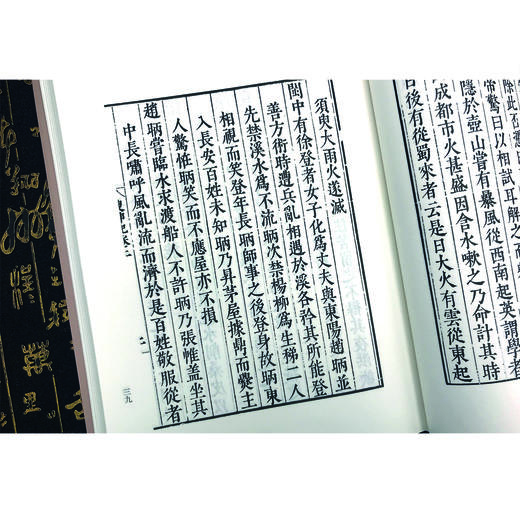 除此否
帝驚曰以相試耳解之
隱於壺山嘗有暴風從西南起英謂學者
成都市火甚盛因含水嗽之乃命計其時
日後有從蜀來者云是日大火有雲從東起
須臾大雨火遂滅
閩中有徐登者女子化爲丈夫與東陽趙昞並
善方術時遭兵亂相遇於溪各矜其所能登
先禁溪水爲不流昞次禁楊柳爲生稊二人
相視而笑登年長昞師事之後登身故昞東
入長安百姓未知昞乃昇茅屋據鼎而爨主
人驚怪昞笑而不應屋亦不損
趙昞嘗臨水求渡船人不許昞乃張帷蓋坐其
中長嘯呼風亂流而濟於是百姓敬服從者
搜神記卷二
二
三九